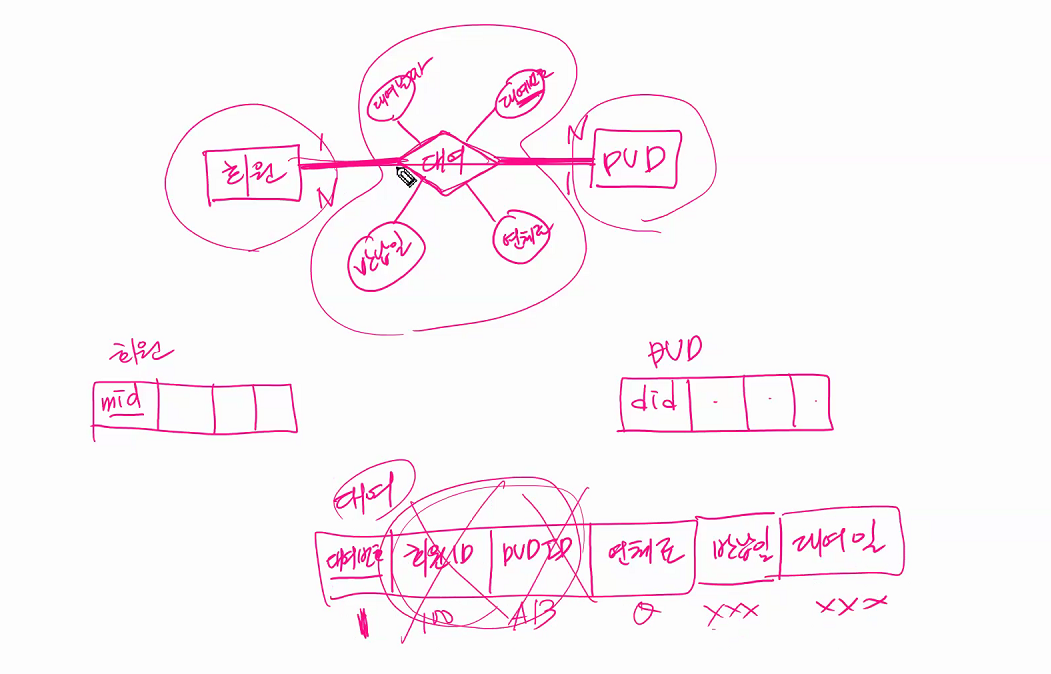 대여날짜
대여번호
1
N
회원
대여
DVD
N
1
반납일
연체료
회원
DVD
mid
did
대여
대여번호 회원ID DVD ID 연체료 반납일 대여일
1 100 A13 0 xxx xxx